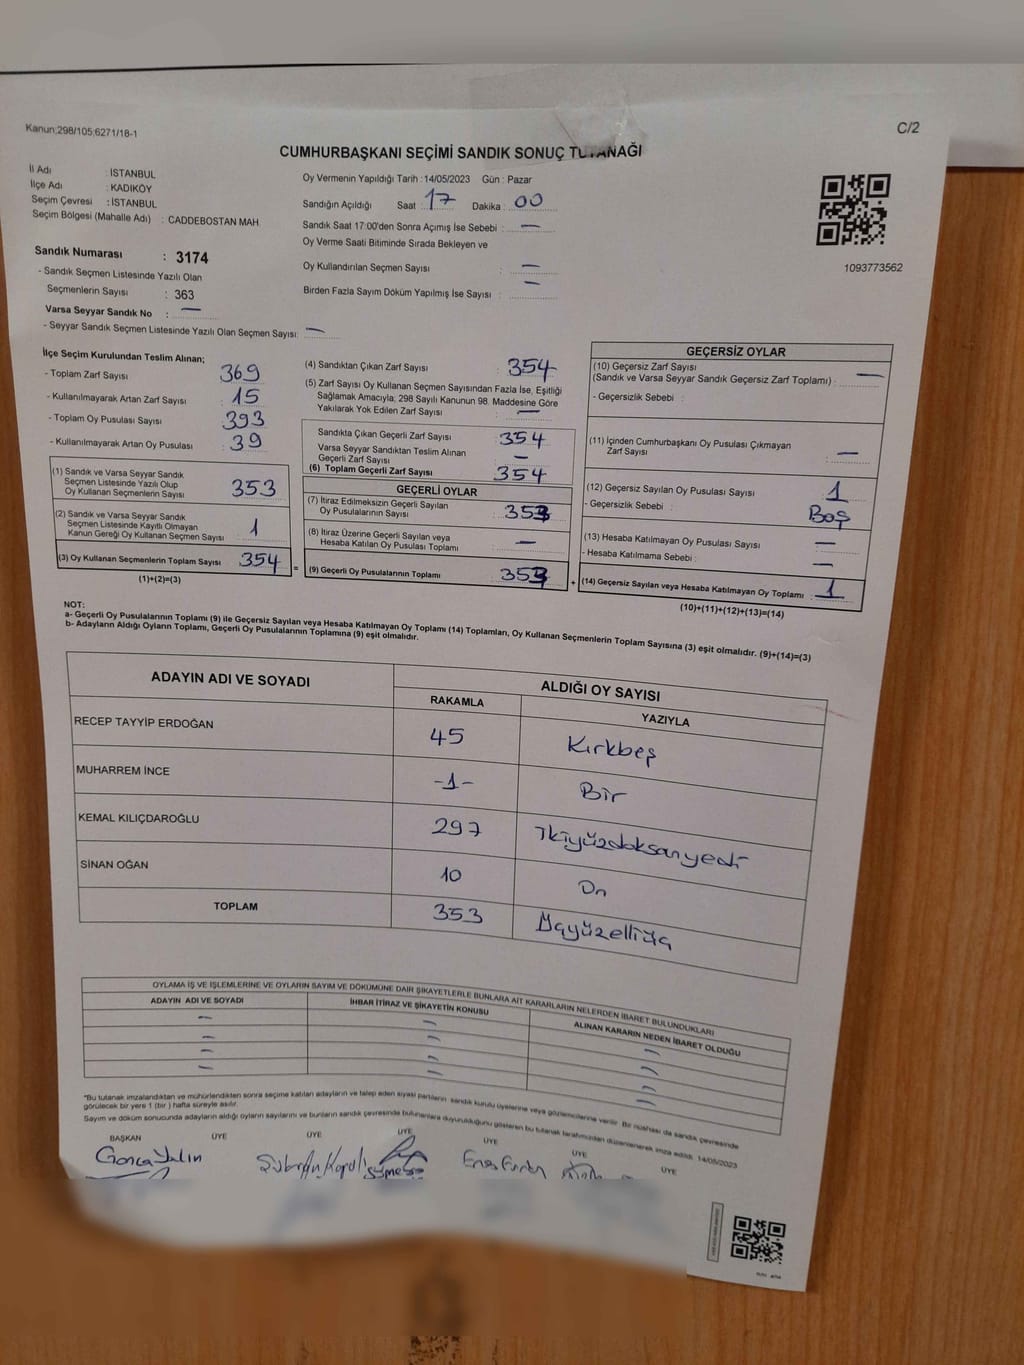 Kanun;298/105;6271/18-1
C/2
CUMHURBAŞKANI SEÇİMİ SANDIK SONUÇ TUTANAĞI
İl Adı : İSTANBUL
İlçe Adı : KADIKÖY
Seçim Çevresi : İSTANBUL
Seçim Bölgesi (Mahalle Adı) : CADDEBOSTAN MAH.
Sandık Numarası : 3174
- Sandık Seçmen Listesinde Yazılı Olan
Seçmenlerin Sayısı : 363
Varsa Seyyar Sandık No : —
- Seyyar Sandık Seçmen Listesinde Yazılı Olan Seçmen Sayısı: —
Oy Vermenin Yapıldığı Tarih : 14/05/2023 Gün : Pazar
Sandığın Açıldığı Saat : 17 Dakika : 00
Sandık Saat 17:00'den Sonra Açılmış İse Sebebi : —
Oy Verme Saati Bitiminde Sırada Bekleyen ve
Oy Kullandırılan Seçmen Sayısı : —
Birden Fazla Sayım Döküm Yapılmış İse Sayısı : —
1093773562
İlçe Seçim Kurulundan Teslim Alınan;
- Toplam Zarf Sayısı : 369
- Kullanılmayarak Artan Zarf Sayısı : 15
- Toplam Oy Pusulası Sayısı : 393
- Kullanılmayarak Artan Oy Pusulası : 39
(1) Sandık ve Varsa Seyyar Sandık
Seçmen Listesinde Yazılı Olup
Oy Kullanan Seçmenlerin Sayısı : 353
(2) Sandık ve Varsa Seyyar Sandık
Seçmen Listesinde Kayıtlı Olmayan
Kanun Gereği Oy Kullanan Seçmen Sayısı : 1
(3) Oy Kullanan Seçmenlerin Toplam Sayısı : 354
(1)+(2)=(3)
(4) Sandıktan Çıkan Zarf Sayısı : 354
(5) Zarf Sayısı Oy Kullanan Seçmen Sayısından Fazla İse, Eşitliği
Sağlamak Amacıyla; 298 Sayılı Kanunun 98. Maddesine Göre
Yakılarak Yok Edilen Zarf Sayısı : —
Sandıkta Çıkan Geçerli Zarf Sayısı : 354
Varsa Seyyar Sandıktan Teslim Alınan
Geçerli Zarf Sayısı : —
(6) Toplam Geçerli Zarf Sayısı : 354
GEÇERLİ OYLAR
(7) İtiraz Edilmeksizin Geçerli Sayılan
Oy Pusulalarının Sayısı : 353
(8) İtiraz Üzerine Geçerli Sayılan veya
Hesaba Katılan Oy Pusulası Toplamı : —
= (9) Geçerli Oy Pusulalarının Toplamı : 353 +
GEÇERSİZ OYLAR
(10) Geçersiz Zarf Sayısı
(Sandık ve Varsa Seyyar Sandık Geçersiz Zarf Toplamı) : —
- Geçersizlik Sebebi :
(11) İçinden Cumhurbaşkanı Oy Pusulası Çıkmayan
Zarf Sayısı : —
(12) Geçersiz Sayılan Oy Pusulası Sayısı : 1
- Geçersizlik Sebebi : Boş
(13) Hesaba Katılmayan Oy Pusulası Sayısı : —
- Hesaba Katılmama Sebebi : —
(14) Geçersiz Sayılan veya Hesaba Katılmayan Oy Toplamı : 1
(10)+(11)+(12)+(13)=(14)
NOT:
a- Geçerli Oy Pusulalarının Toplamı (9) ile Geçersiz Sayılan veya Hesaba Katılmayan Oy Toplamı (14) Toplamları, Oy Kullanan Seçmenlerin Toplam Sayısına (3) eşit olmalıdır. (9)+(14)=(3)
b- Adayların Aldığı Oyların Toplamı, Geçerli Oy Pusulalarının Toplamına (9) eşit olmalıdır.
ADAYIN ADI VE SOYADI ALDIĞI OY SAYISI
RAKAMLA YAZIYLA
RECEP TAYYİP ERDOĞAN 45 Kırkbeş
MUHARREM İNCE -1- Bir
KEMAL KILIÇDAROĞLU 297 İkiyüzdoksanyedi
SİNAN OĞAN 10 On
TOPLAM 353
OYLAMA İŞ VE İŞLEMLERİNE VE OYLARIN SAYIM VE DÖKÜMÜNE DAİR ŞİKAYETLERLE BUNLARA AİT KARARLARIN NELERDEN İBARET BULUNDUKLARI
ADAYIN ADI VE SOYADI İHBAR İTİRAZ VE ŞİKAYETİN KONUSU ALINAN KARARIN NEDEN İBARET OLDUĞU
— — —
— — —
— — —
— — —
*Bu tutanak imzalandıktan ve mühürlendikten sonra seçime katılan adayların ve talep eden siyasi partilerin sandık kurulu üyelerine veya gözlemcilerine verilir. Bir nüshası da sandık çevresinde
görülecek bir yere 1 (bir) hafta süreyle asılır.
Sayım ve döküm sonucunda adayların aldığı oyların sayılarını ve bunların sandık çevresinde bulunanlara duyurulduğunu gösteren bu tutanak tarafımızdan düzenlenerek imza edildi. 14/05/2023
BAŞKAN ÜYE ÜYE ÜYE ÜYE ÜYE ÜYE
Gonca Yalın